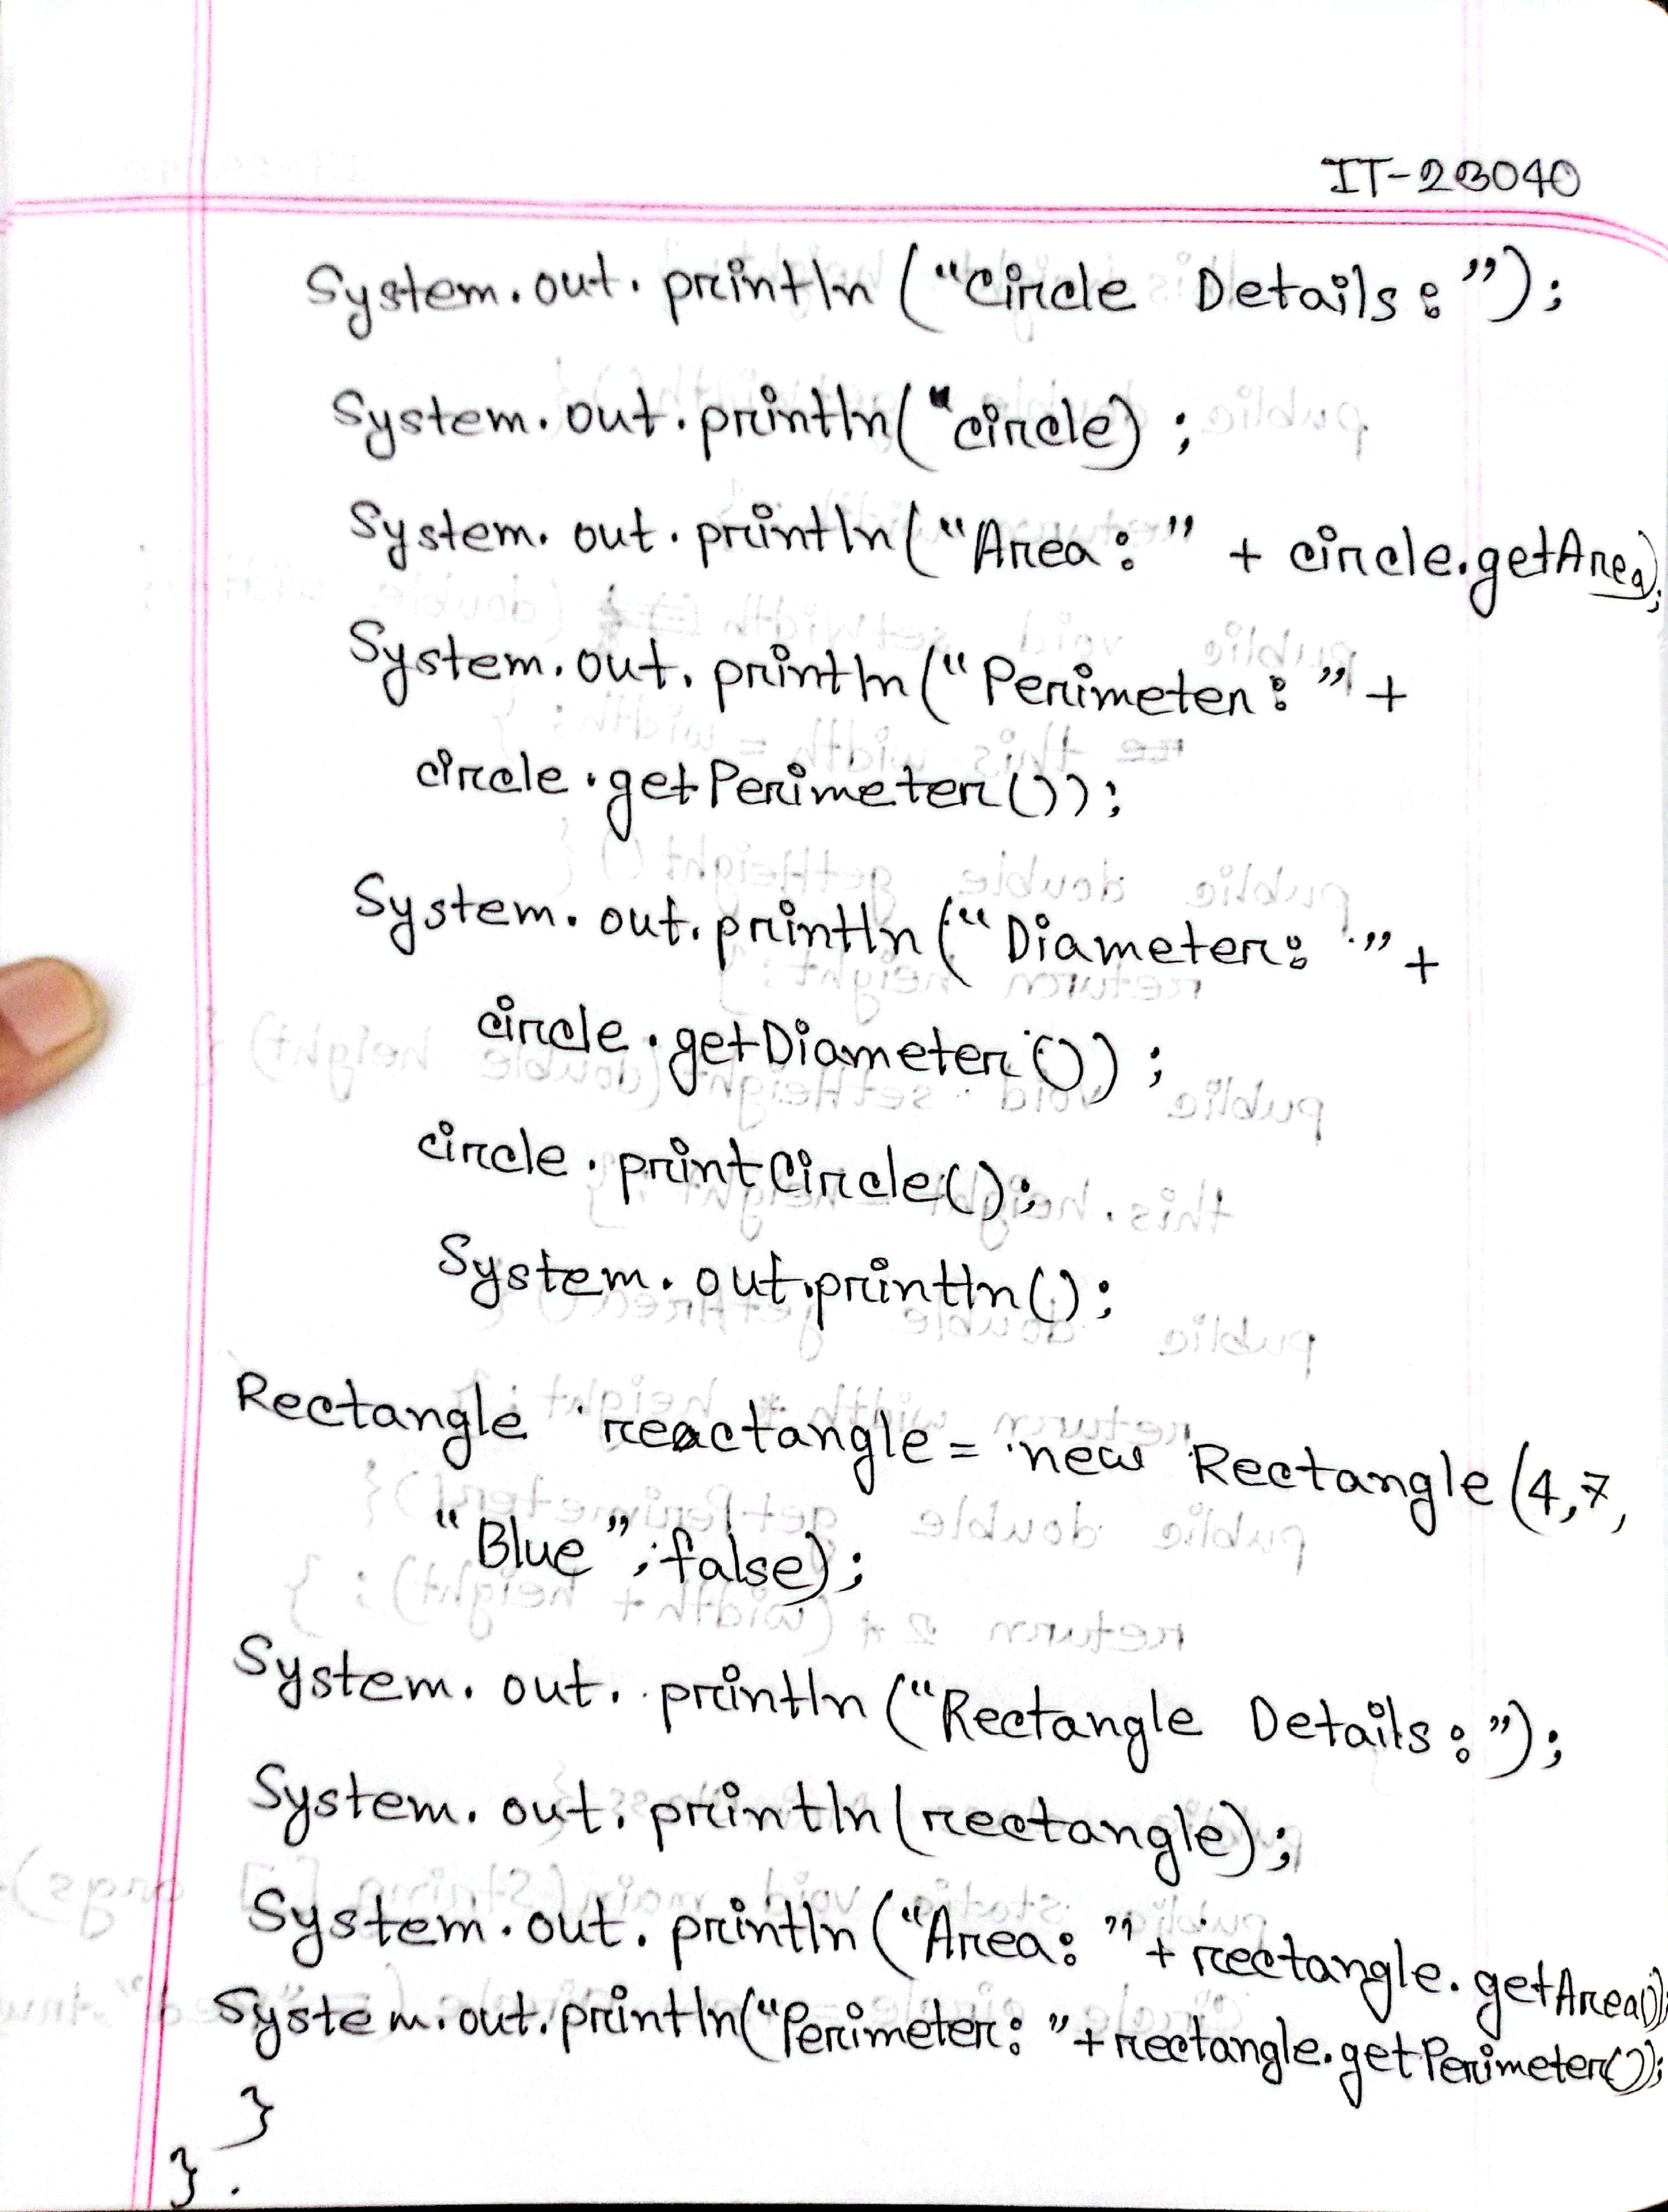 IT-23040
System.out.println ("Circle Details:");
System.out.println("circle);
System.out.println("Area: " + circle.getArea);
System.out.println("Perimeter: " +
circle.getPerimeter());
System.out.println("Diameter: " +
circle.getDiameter());
circle.printCircle();
System.out.println();
Rectangle reactangle = new Rectangle (4,7,
"Blue", false);
System.out.println ("Rectangle Details:");
System.out.println(rectangle);
System.out.println ("Area: " + rectangle.getArea());
System.out.println("Perimeter: "+rectangle.getPerimeter());
}
}.